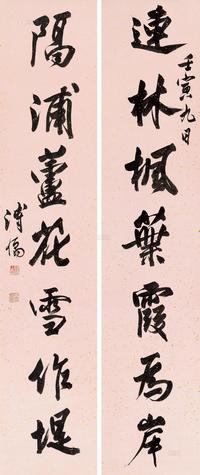 連林楓葉霞為岸
壬寅九日
隔浦蘆花雪作堤
溥儒